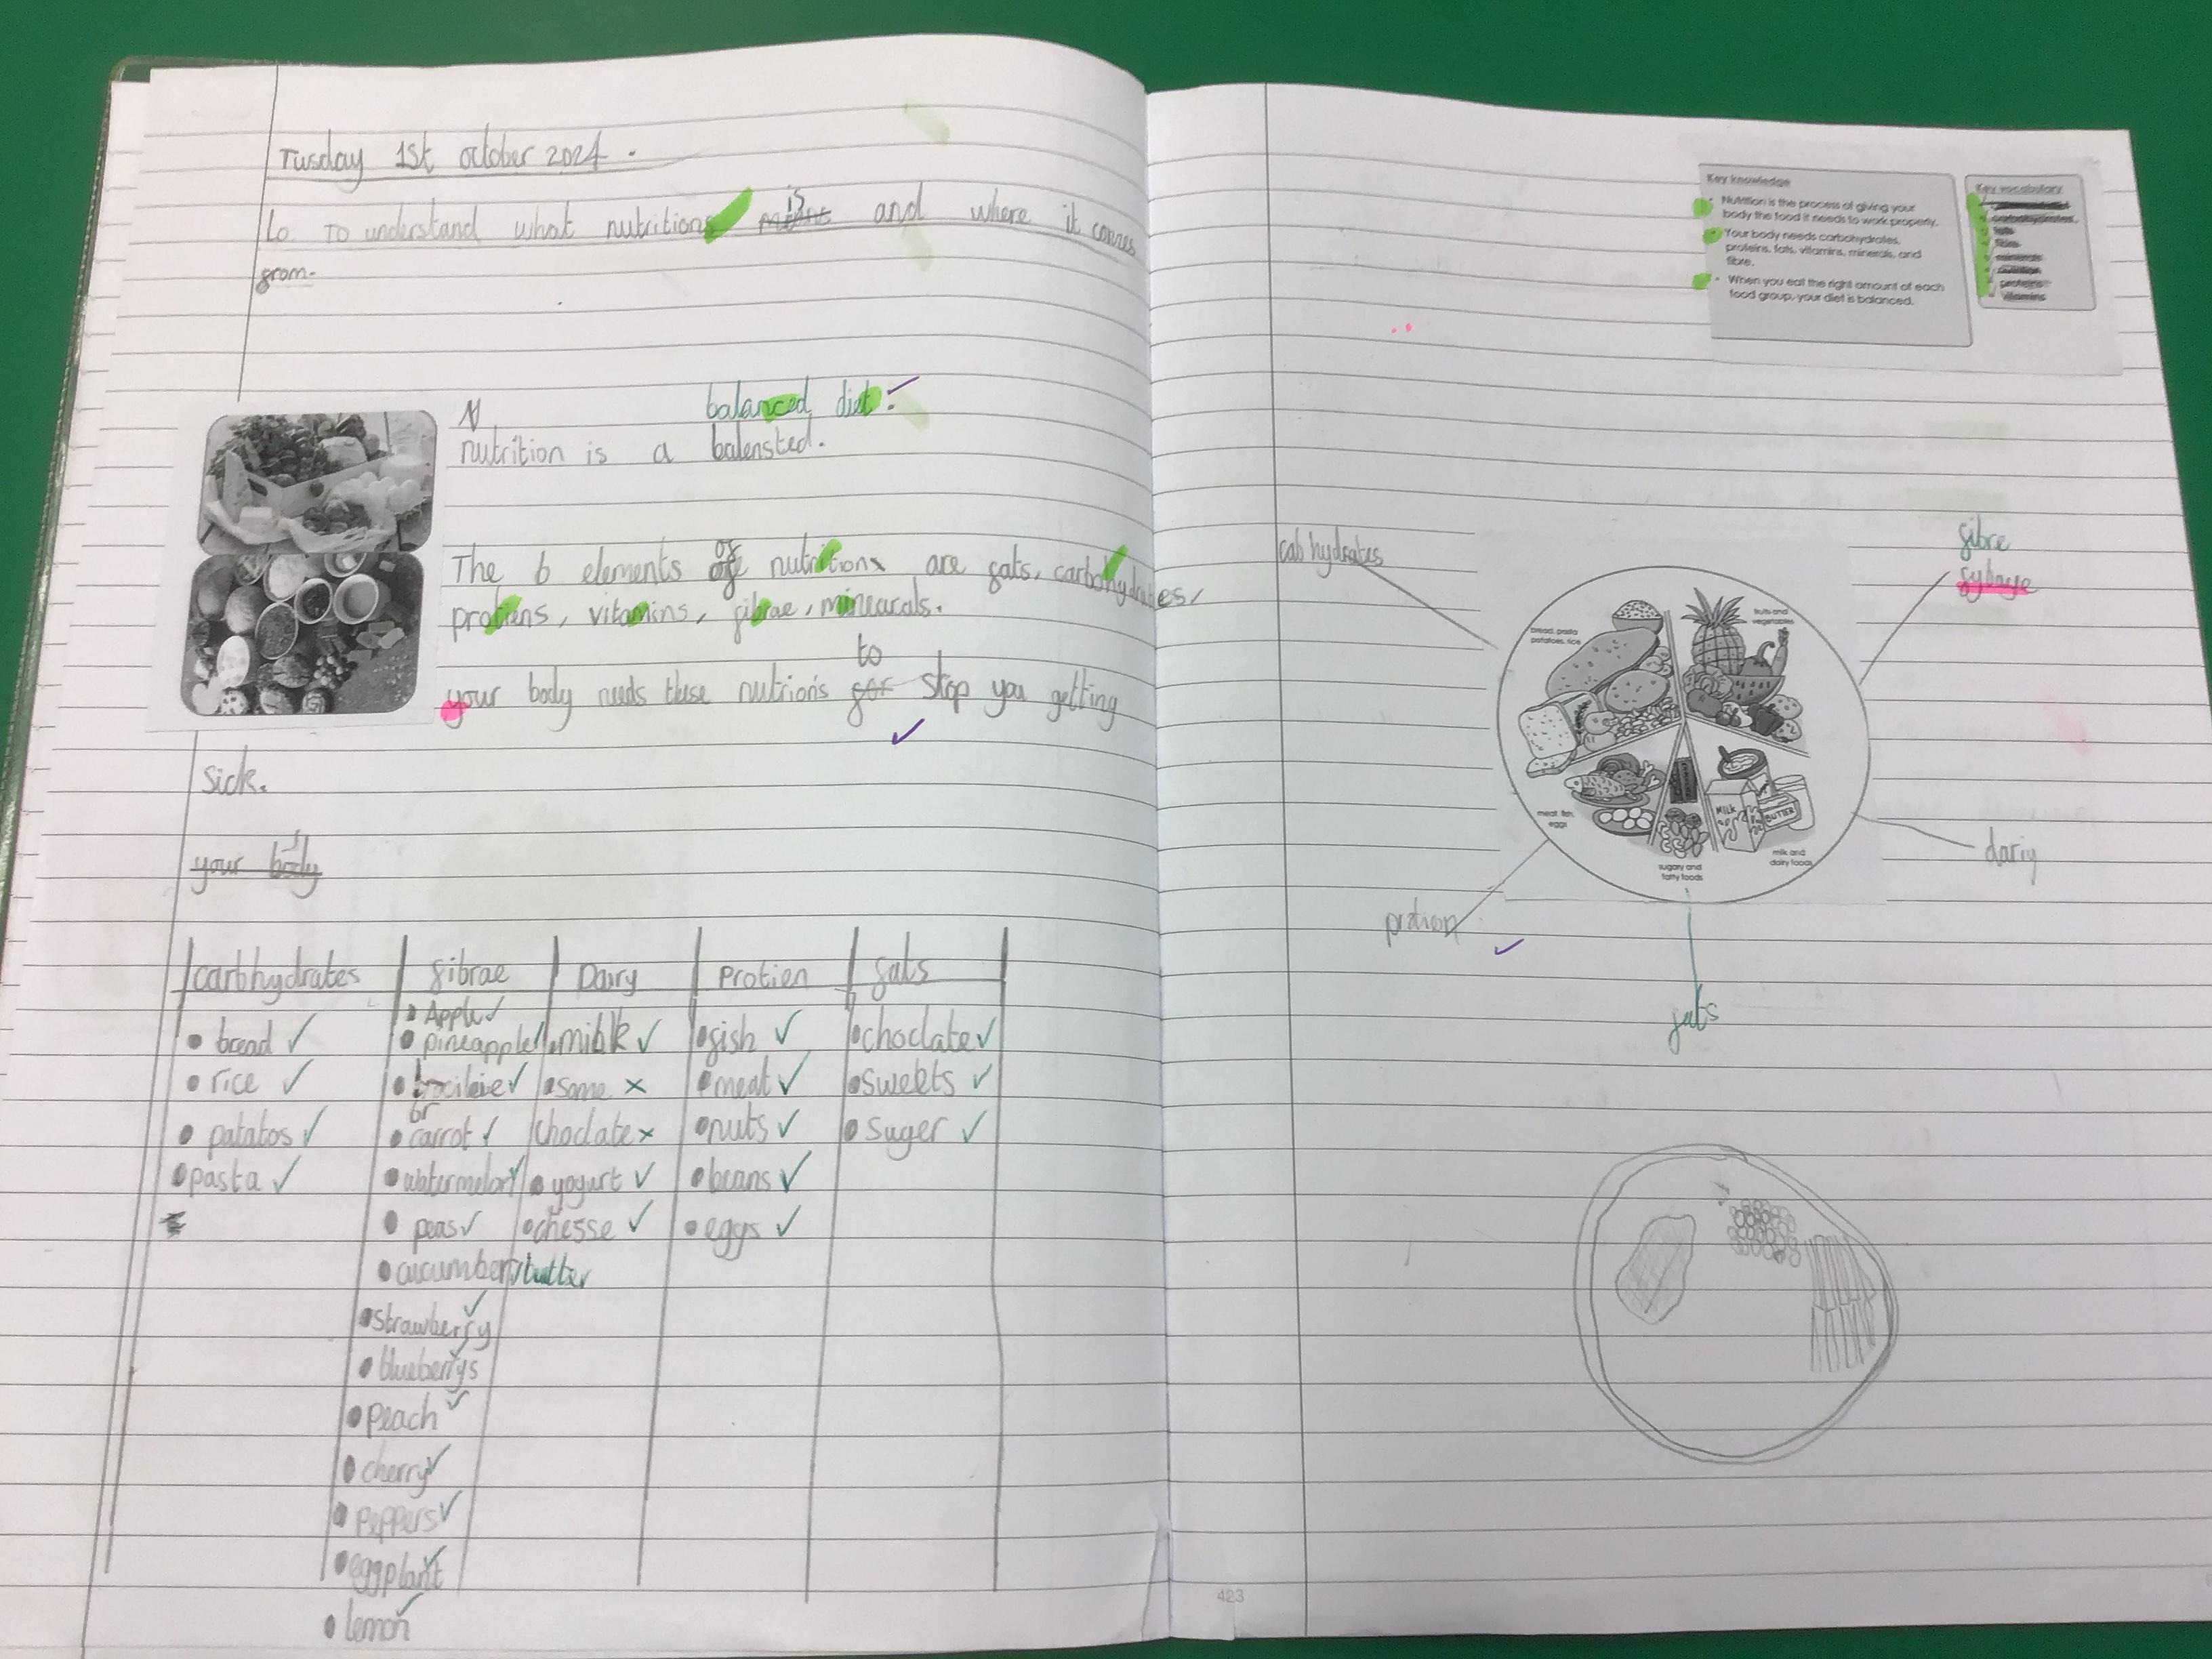 Tusday 1st october 2024.
Lo. To understand what nutritions means is and where it comes
from.
N balanced diet.
nutrition is a balensted.
The 6 elements of of nutritions are fats, carbohydrates,
protiens, vitamins, fibrae, minearals.
to
your body needs these nutrion's for stop you getting
sick.
your body
carbhydrates fibrae Dairy Protien fats
Apple
bread pineapple milk fish choclate
rice brocileie some meat sweets
or
patatos carrot choclate nuts suger
pasta watermelon yogurt beans
peas chesse eggs
cucumber butter
strawberry
blueberrys
peach
cherry
peppers
eggplant
lemon
Key knowledge
Nutrition is the process of giving your
body the food it needs to work properly.
Your body needs carbohydrates,
proteins, fats, vitamins, minerals, and
fibre.
When you eat the right amount of each
food group, your diet is balanced.
Key vocabulary
carbohydrates
fats
fibre
minerals
nutrition
proteins
vitamins
cab hydrates
fibre
fybaye
bread, pasta
potatoes, rice
fruits and
vegetables
meat, fish,
eggs
MILK
BUTTER
sugary and
fatty foods
milk and
dairy foods
dariy
protien
fats
423